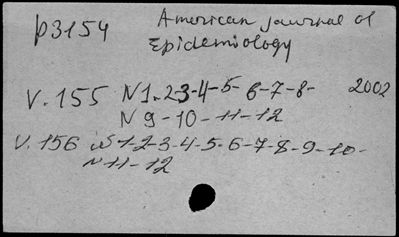 p3154 American journal of
Epidemiology
V. 155 N1-2-3-4-5-6-7-8- 2002
N9-10-11-12
V. 156 N1-2-3-4-5-6-7-8-9-10-
N11-12